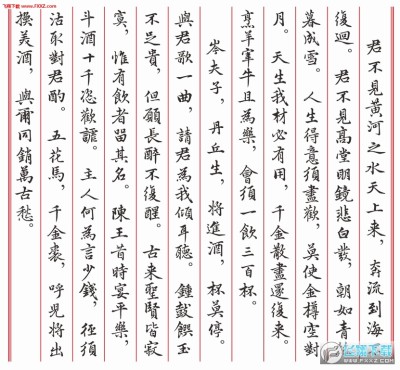 飞翔下载
君不見黃河之水天上來，奔流到海
復迴。君不見高堂明鏡悲白發，朝如青
暮成雪。人生得意須盡歡，莫使金樽空對
月。天生我材必有用，千金散盡還復來。
烹羊宰牛且為樂，會須一飲三百杯。
岑夫子，丹丘生，將進酒，杯莫停。
與君歌一曲，請君為我傾耳聽。鐘鼓饌玉
不足貴，但願長醉不復醒。古來聖賢皆寂
寞，惟有飲者留其名。陳王昔時宴平樂，
斗酒十千恣歡謔。主人何為言少錢，徑須
沽取對君酌。五花馬，千金裘，呼兒將出
換美酒，與爾同銷萬古愁。